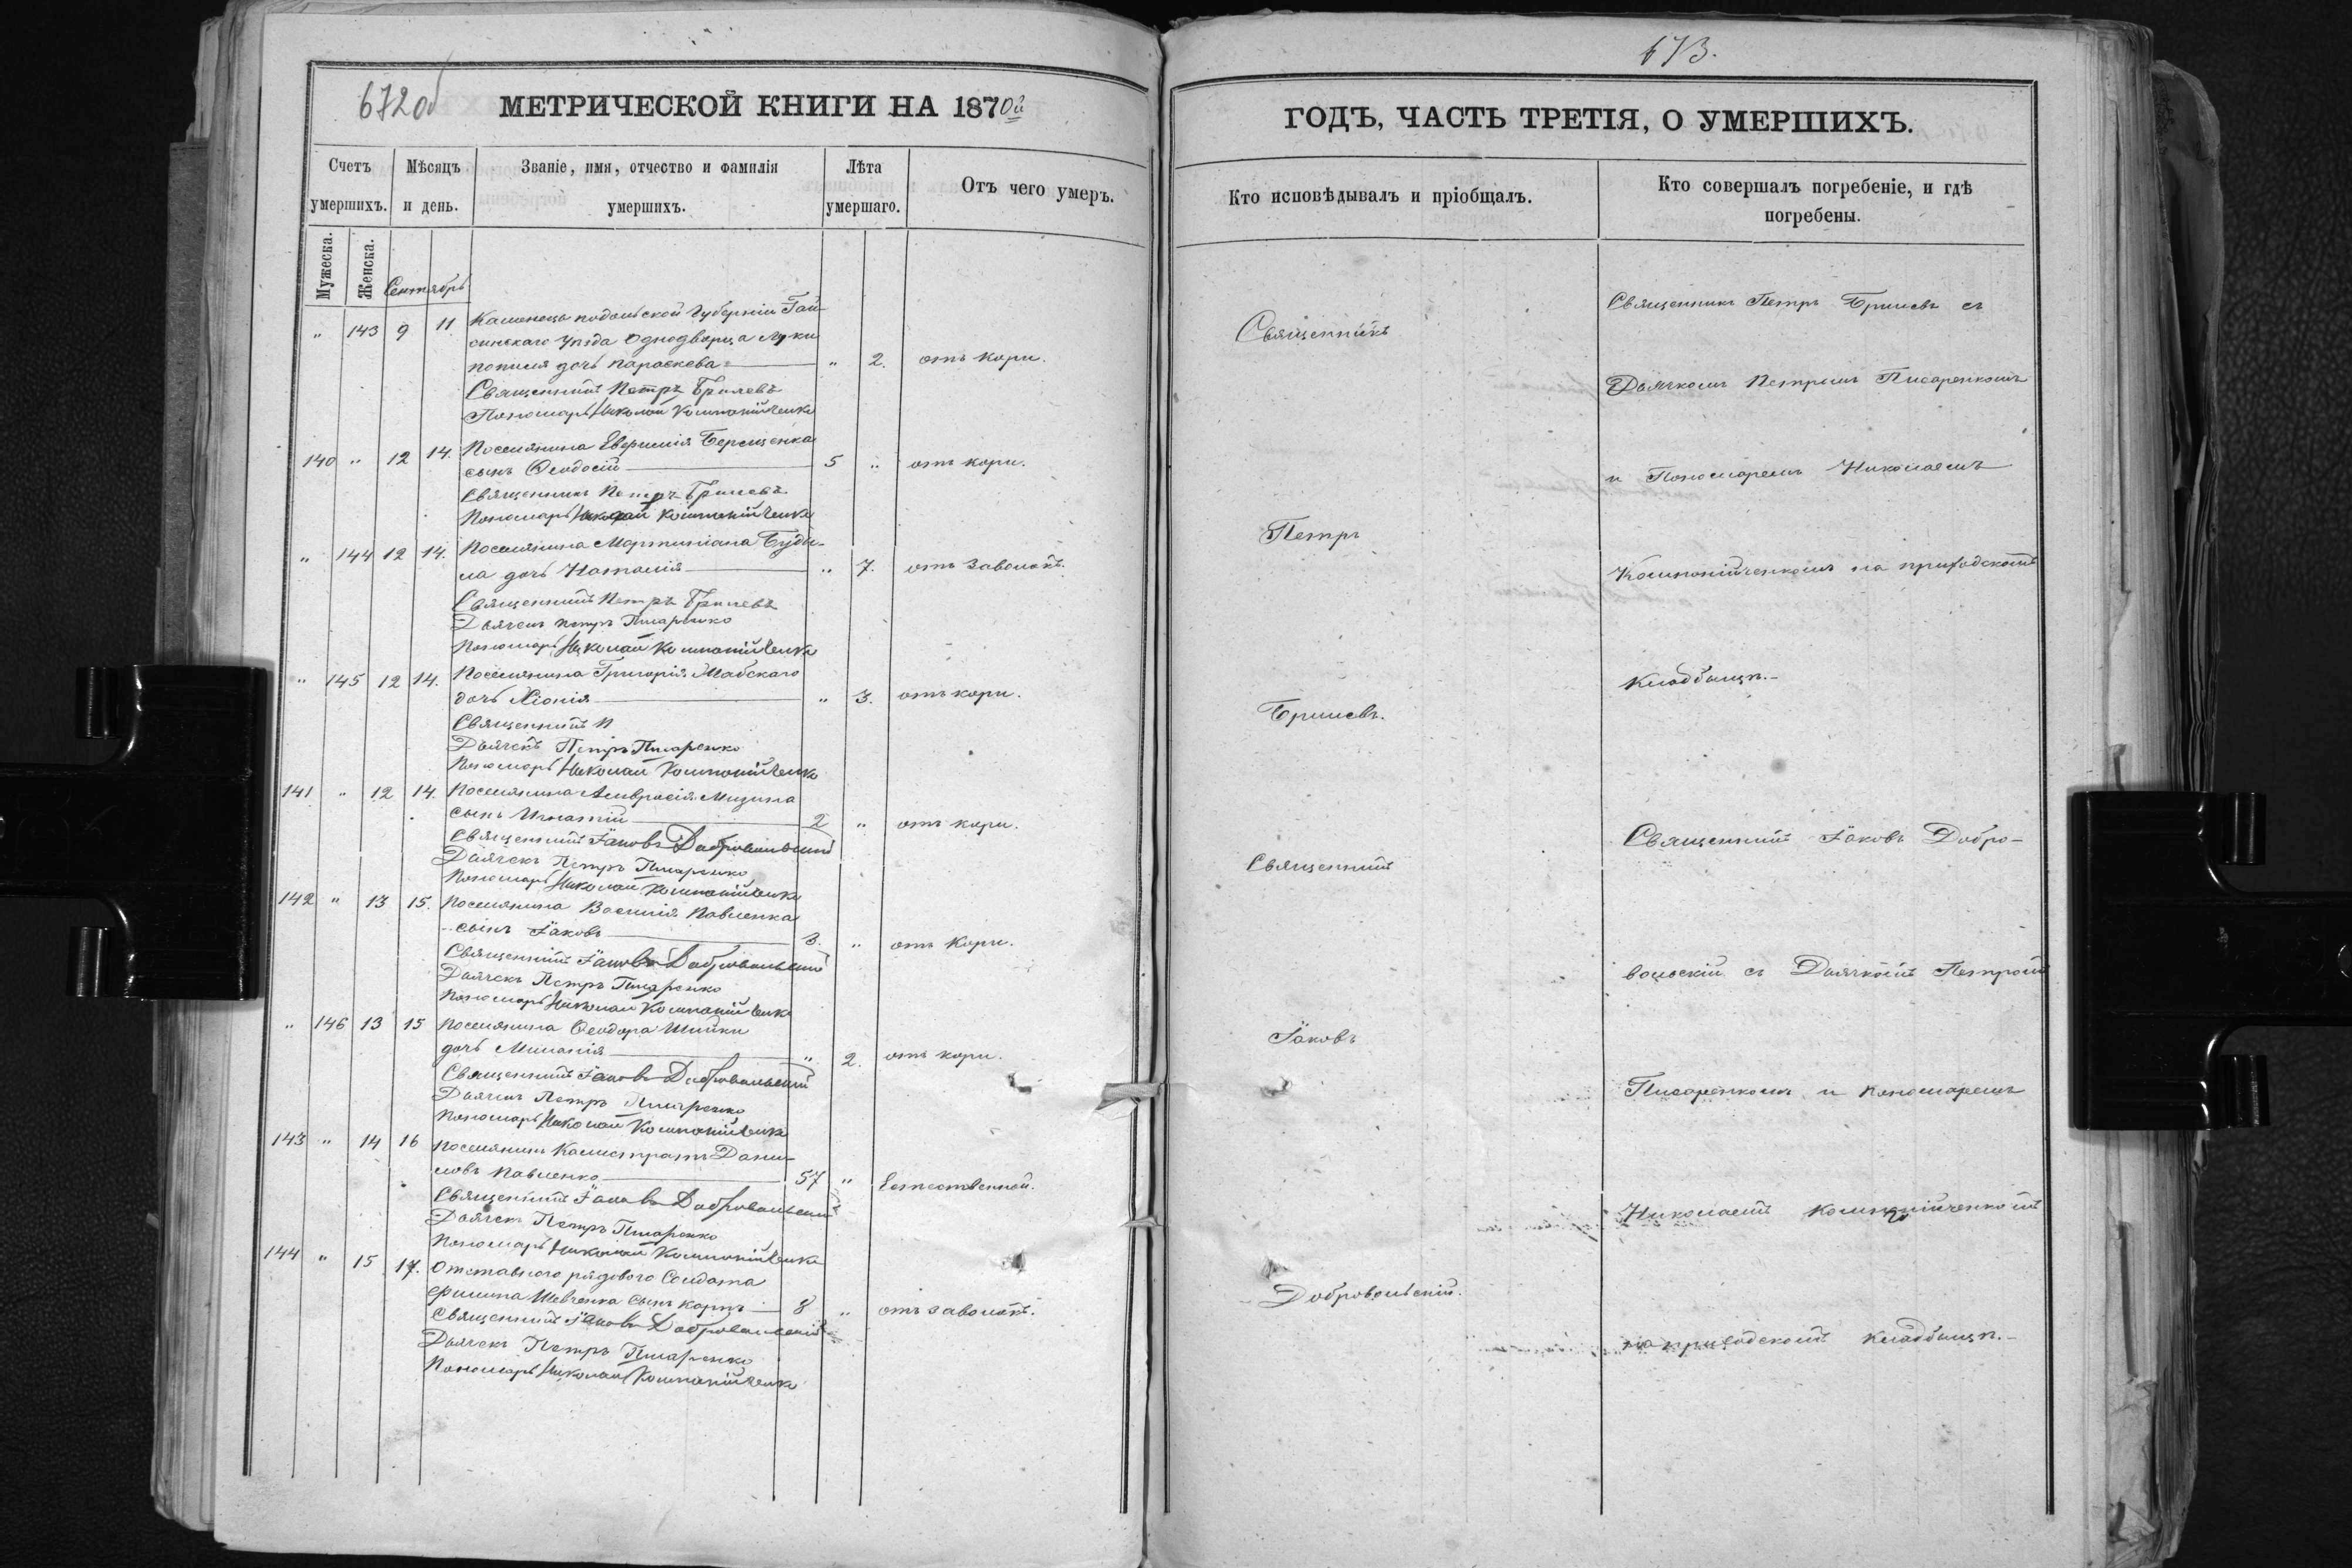 672об
МЕТРИЧЕСКОЙ КНИГИ НА 1870й
Счетъ умершихъ.
Мѣсяцъ и день.
Званіе, имя, отчество и фамилія умершихъ.
Лѣта умершаго.
Отъ чего умеръ.
Мужеска.
Женска.
Сентябрь
" 143 9 11 Каменецъ подольской Губерніи Гай-
синскаго Уѣзда Однодворца Луки
дочь Параскева " 2. отъ кори.
Священникъ Петръ Брилевъ
Пономарь Николай Компанійченко
140 " 12 14. Поселянина Евфимія Берещенка
сынъ Ѳеодосій 5 " отъ кори.
Священникъ Петръ Брилевъ
Пономарь Николай Компанійченко
" 144 12 14. Поселянина Мартиніана Буды-
ла дочь Наталія " 7. отъ заволокъ.
Священникъ Петръ Брилевъ
Дьячекъ Петръ Писаренко
Пономарь Николай Компанійченко
" 145 12 14. Поселянина Григорія
дочь Хіонія " 3. отъ кори.
Священникъ П
Дьячекъ Петръ Писаренко
Пономарь Николай Компанійченко
141 " 12 14. Поселянина Амвросія Мицина
сынъ Игнатій 2 " отъ кори.
Священникъ Іаковъ Добровольскій
Дьячекъ Петръ Писаренко
Пономарь Николай Компанійченко
142 " 13 15. Поселянина Василія Павленка
сынъ Іаковъ 3. " отъ кори.
Священникъ Іаковъ Добровольскій
Дьячекъ Петръ Писаренко
Пономарь Николай Компанійченко
" 146 13 15 Поселянина Ѳеодора Шийки
дочь Миланія " 2. отъ кори.
Священникъ Іаковъ Добровольскій
Дьячекъ Петръ Писаренко
Пономарь Николай Компанійченко
143 " 14 16 Поселянинъ Калистратъ Дани-
ловъ Павленко 57 " Естественной.
Священникъ Іаковъ Добровольскій
Дьячекъ Петръ Писаренко
Пономарь Николай Компанійченко
144 " 15 17. Отставного рядового Солдата
Филипа Шевченка сынъ Карпъ 8 " отъ заволокъ.
Священникъ Іаковъ Добровольскій
Дьячекъ Петръ Писаренко
Пономарь Николай Компанійченко
673.
ГОДЪ, ЧАСТЬ ТРЕТІЯ, О УМЕРШИХЪ.
Кто исповѣдывалъ и пріобщалъ.
Кто совершалъ погребеніе, и гдѣ
погребены.
Священникъ
Петръ
Брилевъ.
Священникъ
Іаковъ
Добровольскій.
Священникъ Петръ Брилевъ съ
Дьячкомъ Петромъ Писаренкомъ
и Пономаремъ Николаемъ
Компанійченкомъ на приходскомъ
кладбищѣ.-
Священникъ Іаковъ Добро-
вольскій съ Дьячкомъ Петромъ
Писаренкомъ и Пономаремъ
Николаемъ Компанійченкомъ
на приходскомъ кладбищѣ.-